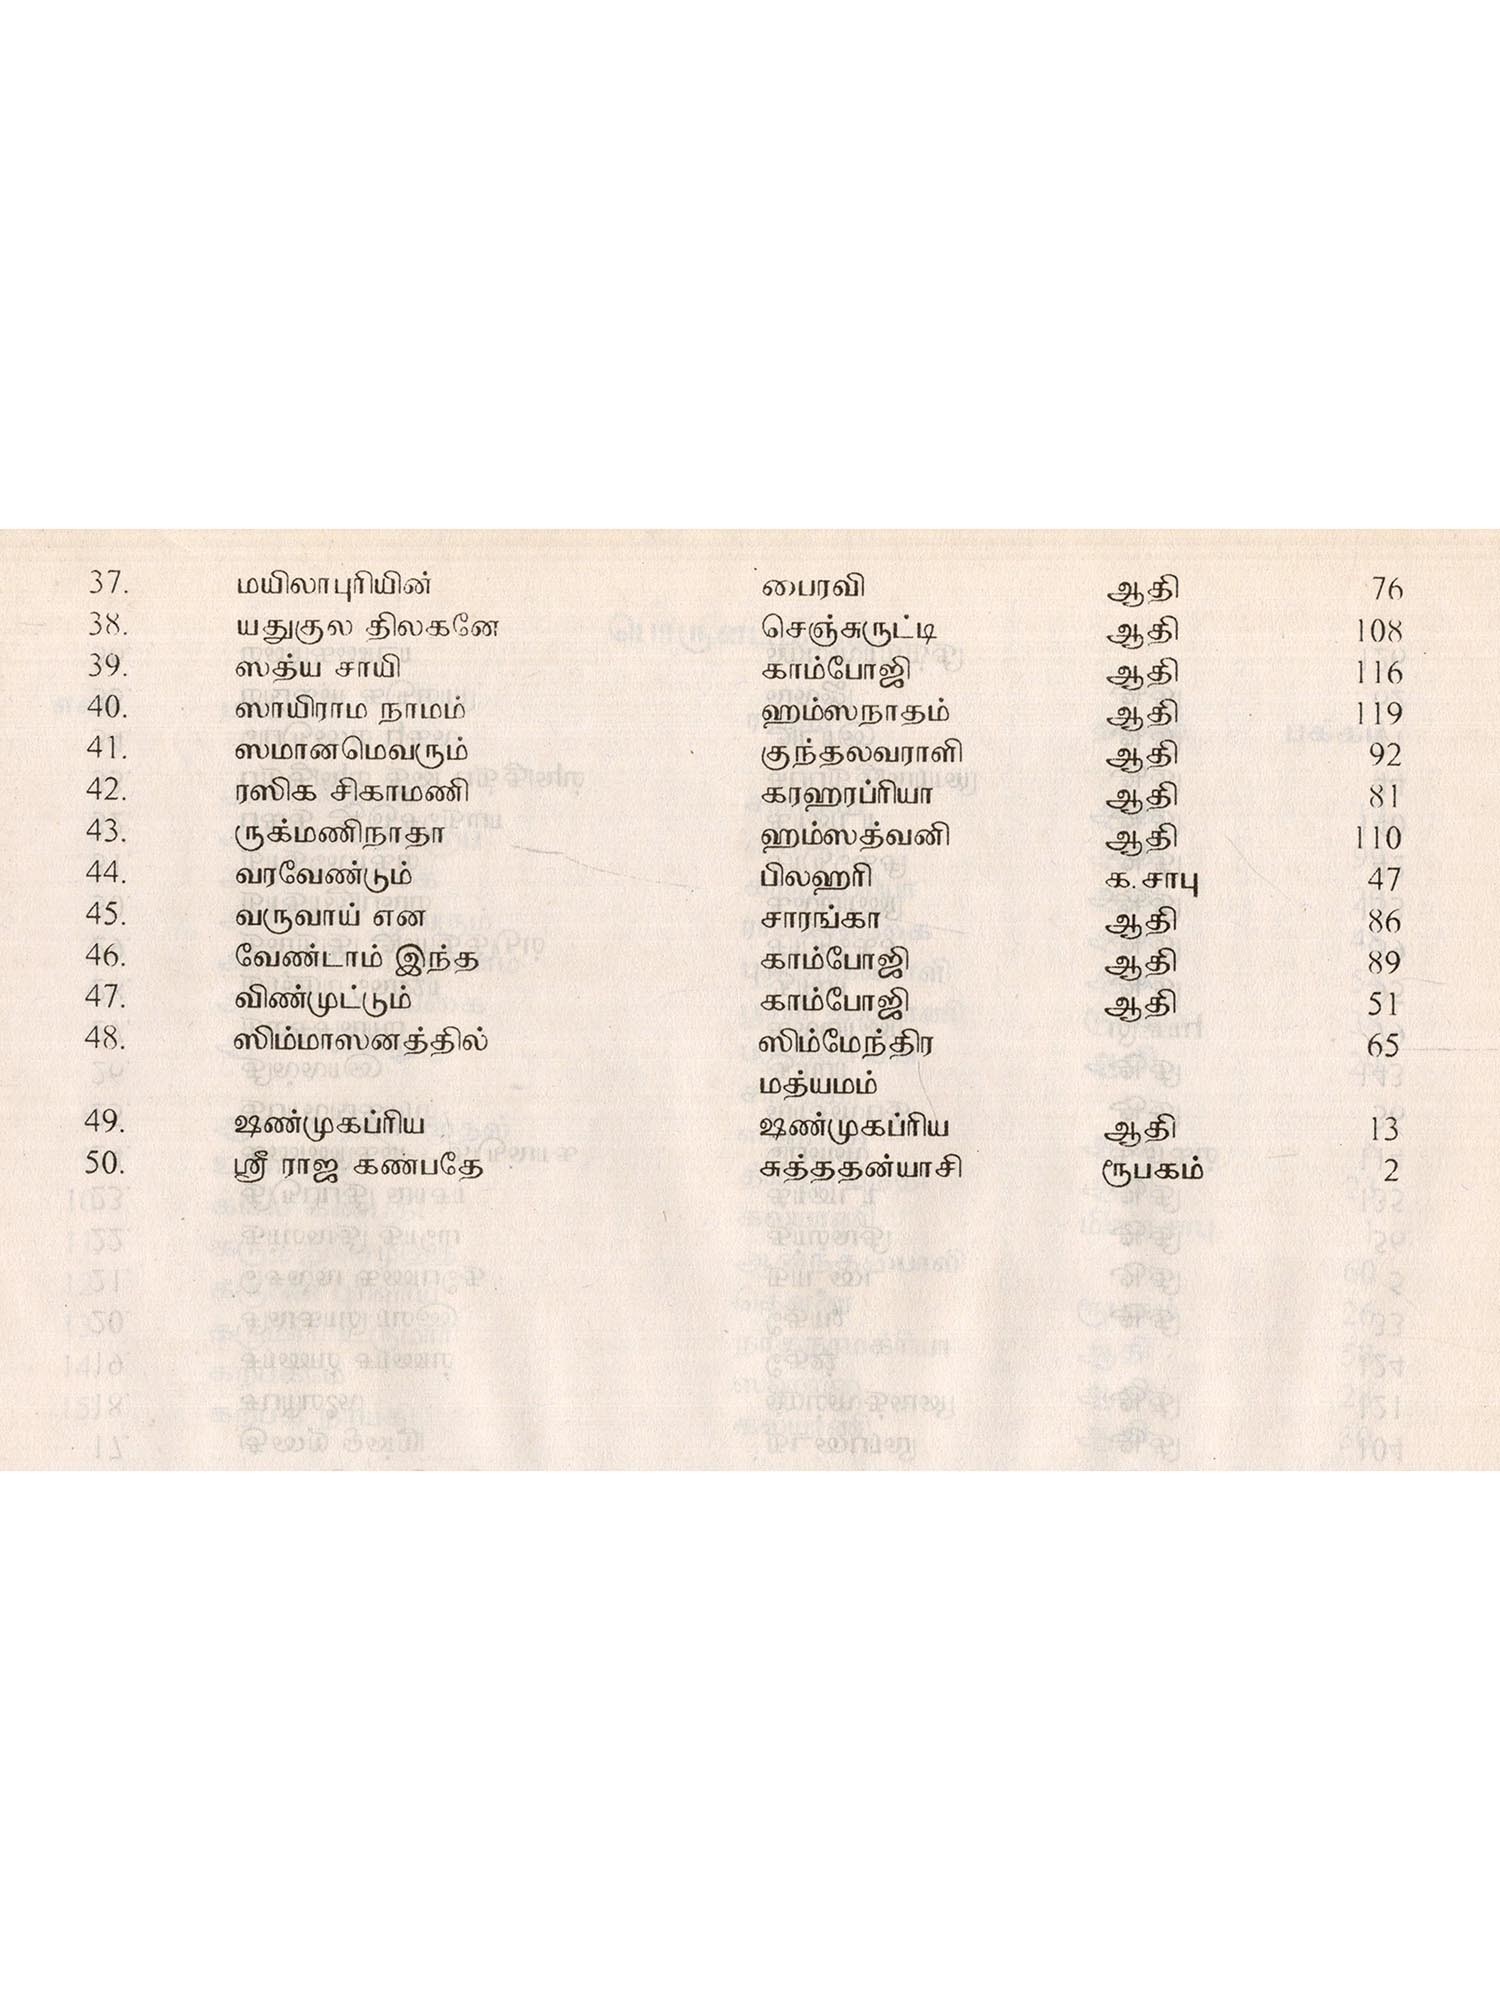 37. மயிலாபுரியின் பைரவி ஆதி 76
38. யதுகுல திலகனே செஞ்சுருட்டி ஆதி 108
39. ஸத்ய சாயி காம்போஜி ஆதி 116
40. ஸாயிராம நாமம் ஹம்ஸநாதம் ஆதி 119
41. ஸமானமெவரும் குந்தலவராளி ஆதி 92
42. ரஸிக சிகாமணி கரஹரப்ரியா ஆதி 81
43. ருக்மணிநாதா ஹம்ஸத்வனி ஆதி 110
44. வரவேண்டும் பிலஹரி க. சாபு 47
45. வருவாய் என சாரங்கா ஆதி 86
46. வேண்டாம் இந்த காம்போஜி ஆதி 89
47. விண்முட்டும் காம்போஜி ஆதி 51
48. ஸிம்மாஸனத்தில் ஸிம்மேந்திர 65
மத்யமம்
49. ஷண்முகப்ரிய ஷண்முகப்ரிய ஆதி 13
50. ஸ்ரீ ராஜ கணபதே சுத்ததன்யாசி ரூபகம் 2